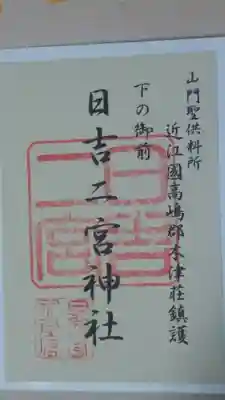 山門聖供料所
近江國高嶋郡木津荘鎮護
下の御前
日吉二宮神社